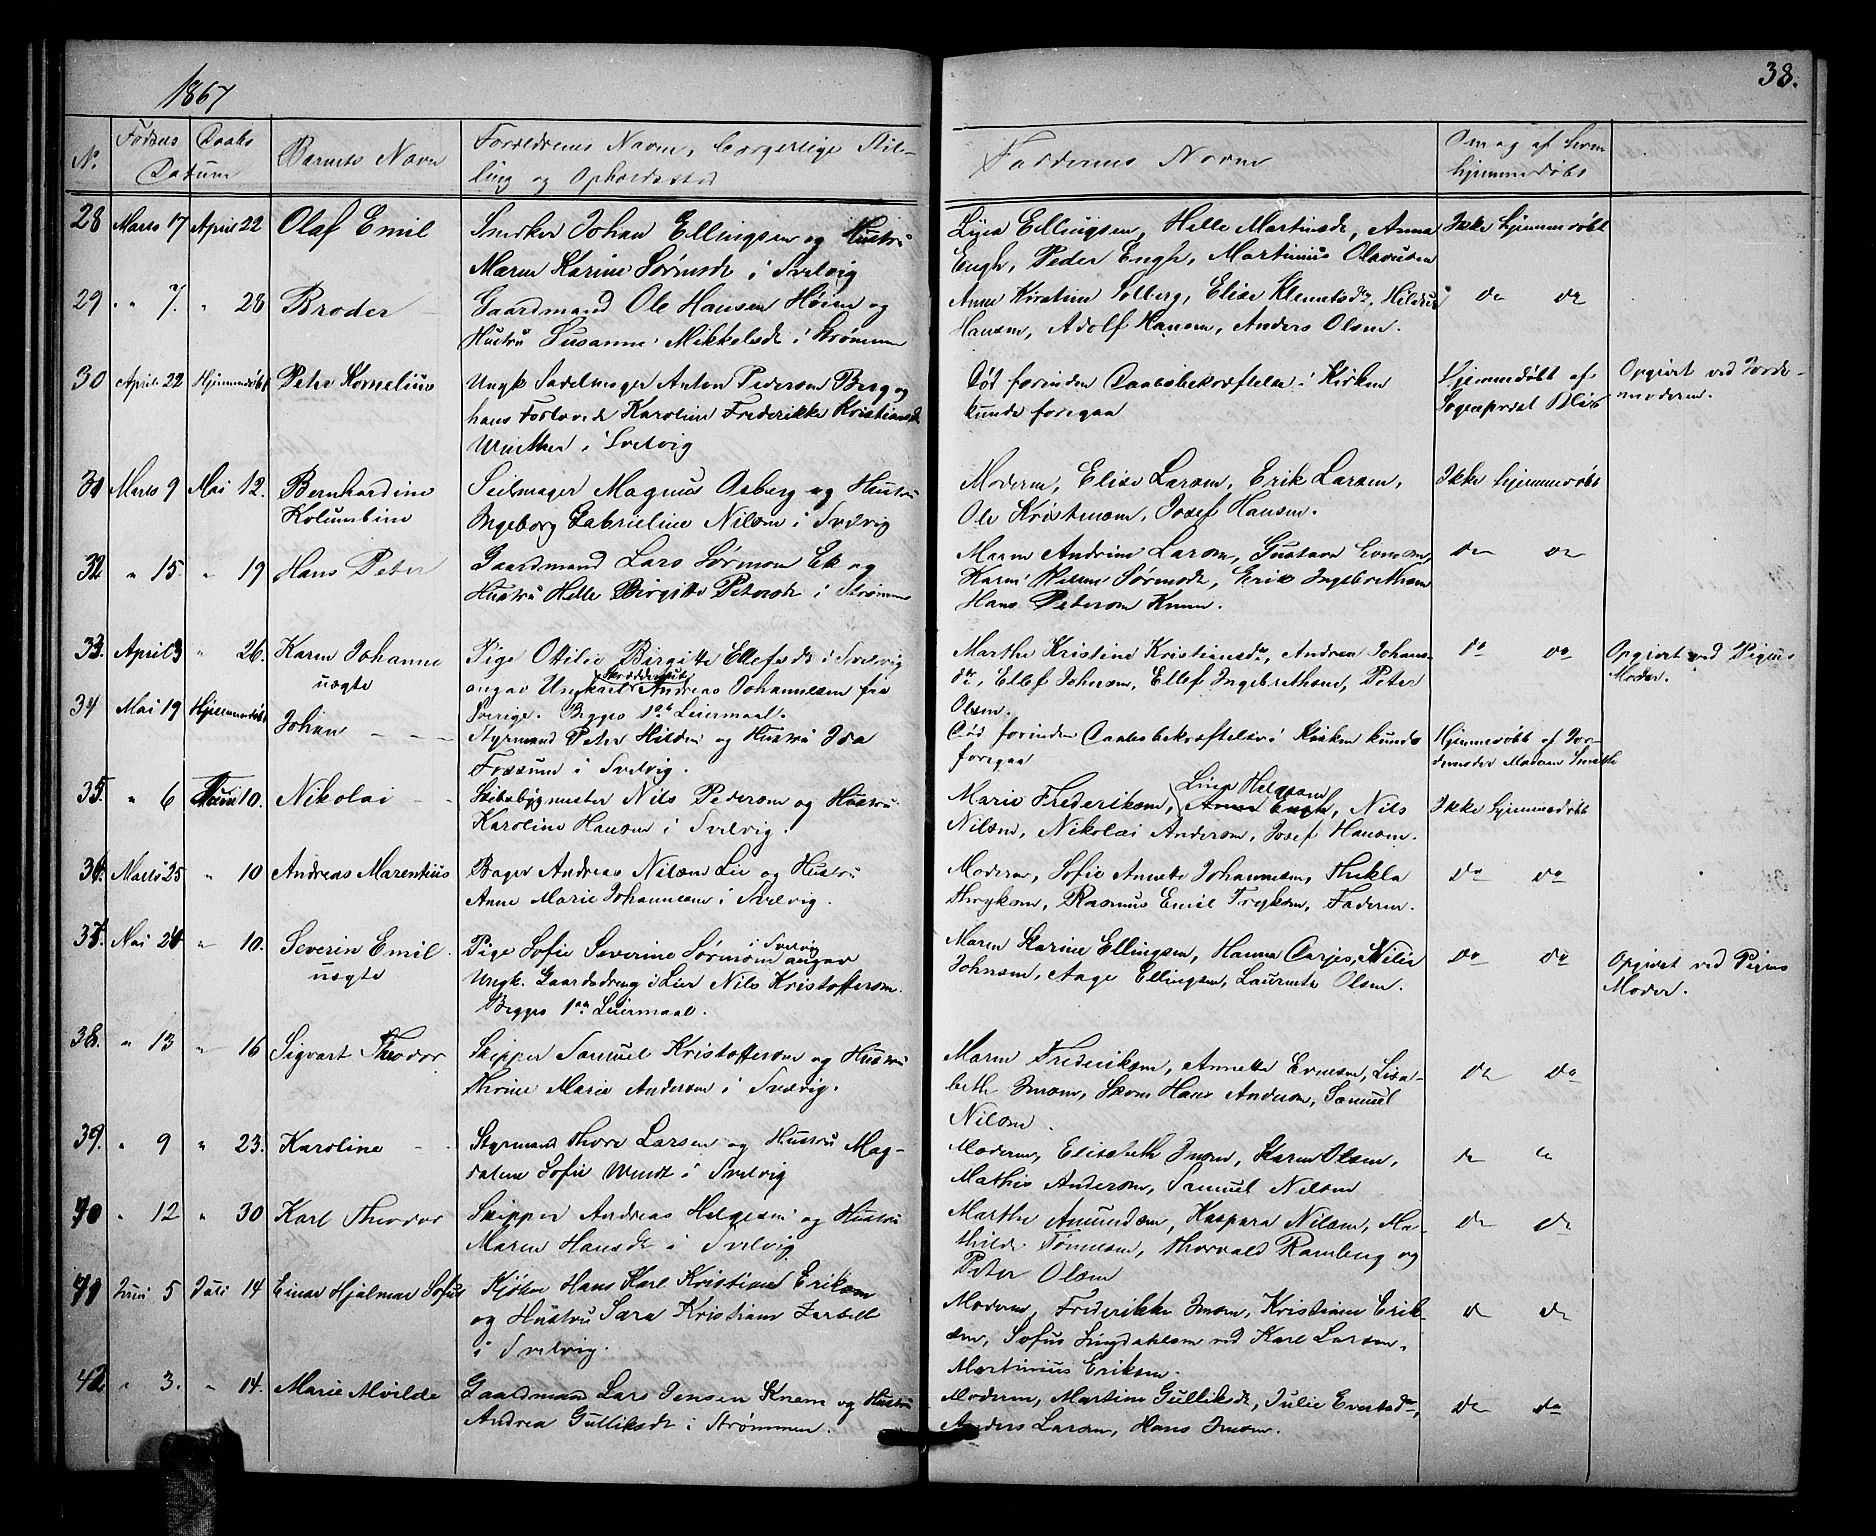 1867
38.
N. Fødsels Daabs Datum Barnets Navn Forældrenes Navn, borgerlige Stil-
ling og Opholdssted
Faddernes Navne
Om og af hvem
hjemmedøbt
28 Marts 17 April 22 Olaf Emil Snedker Johan Ellingsen og Hustru
Maren Karine Sørensdr i Svelvig
Ellingsen, Helle Martinsdr, Anna
Engh, Peder Engh, Martinius Olavesen
Ikke hjemmedøbt
29 " 7. " 28 Broder Gaardmand Ole Hansen Høien og
Hustru Susanne Mikkelsdr i Strømmen
Anne Kirstine Solberg, Elise Klemetsdr,
Hansen, Adolf Hansen, Anders Olsen.
do do
30 April 22 Hjemmedøbt Peter Kornelius Ungk. Sadelmager Anton Pedersen Berg og
hans Forlovede Karoline Frederikke Kristiansdr
Winther i Svelvig
Død forinden Daabsbekræftelse i Kirken
kunde foregaa
Hjemmedøbt af
Sogneprest Blix
Opgivet ved Jorde-
moderen.
31 Marts 9 Mai 12. Bernhardine
Kolumbine
Seilmager Magnus Aaberg og Hustru
Ingeborg Gabrieline Nilsen i Svelvig
Moderen, Elise Larsen, Erik Larsen,
Ole Kristensen, Josef Hansen.
Ikke hjemmedøbt
32 " 15. " 19 Hans Peter Gaardmand Lars Sørensen Ek og
Hustru Helle Birgitte Petersdr i Strømm
Maren Andrine Larsen, Gustava Evensen,
Karen Helene Sørensdr, Erik Ingebrethsen
Hans Petersen Knem.
do do
33. April 3 " 26. Karen Johanne
uægte
Pige Ottilie Birgitte Ellefsdr i Svelvig
angav Ungkarl Skræddersvend Andreas Johannesen fra
Sverige. Begges 1ste Leiermaal.
Marthe Kristine Kristiansdr, Andrea Johans-
dr, Ellef Johnsen, Ellef Ingebrethsen, Peter
Olsen.
do do
Opgivet ved Pigens
Moder.
34 Mai 19 Hjemmedøbt Johan Styrmand Peter Hilden og Hustru Ida
Fossum i Svelvig.
Død forinden Daabsbekræftelse i Kirken kunde
foregaa
Hjemmedøbt af Jor-
demoder Madam Smith
35. " 6 Juni 10. Nikolai Skibsbygmester Nils Pedersen og Hustru
Karoline Hansen i Svelvig.
Marie Frederiksen, Anne Engh, Lina Helgesen, Nils
Nilsen, Nikolai Andersen, Josef Hansen.
Ikke hjemmedøbt
36. Marts 25 " 10 Andreas Marentius Bager Andreas Nilsen Lie og Hustru
Anne Marie Johannesen i Svelvig.
Moderen, Sofie Annette Johannesen, Thekla
Thrygsen, Rasmus Emil Trygsen, Faderen.
do do
37. Mai 20 " 10. Severin Emil
uægte
Pige Sofie Severine Sørensen i Svelvig angav
Ungk. Gaardsdreng i Lier Nils Kristoffersen.
Begges 1ste Leiermaal.
Maren Karine Ellingsen, Hanna Carjes, Nilia
Johnsen, Aage Ellingsen, Laurents Olsen.
do do
Opgivet ved Pigens
Moder.
38. " 13 " 16 Sigvart Theodor Skipper Samuel Kristoffersen og Hustru
Thrine Marie Andersen i Svelvig.
Maren Frederiksen, Annette Evensen, Lisa-
beth Jensen, Hans Andersen, Samuel
Nilsen.
do do
39. " 9 " 23. Karoline Styrmand Thore Larsen og Hustru Mag-
dalene Sofie Wendt i Svelvig
Moderen, Elisabeth Jensen, Karen Olsen,
Mathis Andersen, Samuel Nilsen
do do
40 " 12 " 30 Karl Theodor Skipper Andreas Helgesen og Hustru
Maren Hansdr i Svelvig
Marthe Amundsen, Kaspara Nilsen, Ma-
thilde Tønnesen, Thorvald Ramberg og
Peter Olsen
do do
41 Juni 5 Juli 14 Einar Hjalmar Sofus Kjøbm Hans Karl Kristian Eriksen
og Hustru Sara Kristiane Zarbell
i Svelvig.
Moderen, Frederikke Jensen, Kristiane Erik-
sen, Sofus Lingdahlsen ved Karl Larsen,
Martinius Eriksen.
do do
42 " 3. " 14. Marie Alvilde Gaardmand Lars Jensen Knem og Hustru
Andrea Gulliksdr i Strømmen.
Moderen, Martine Gulliksdr, Julie Evertsdr,
Anders Larsen, Hans Jensen.
do do